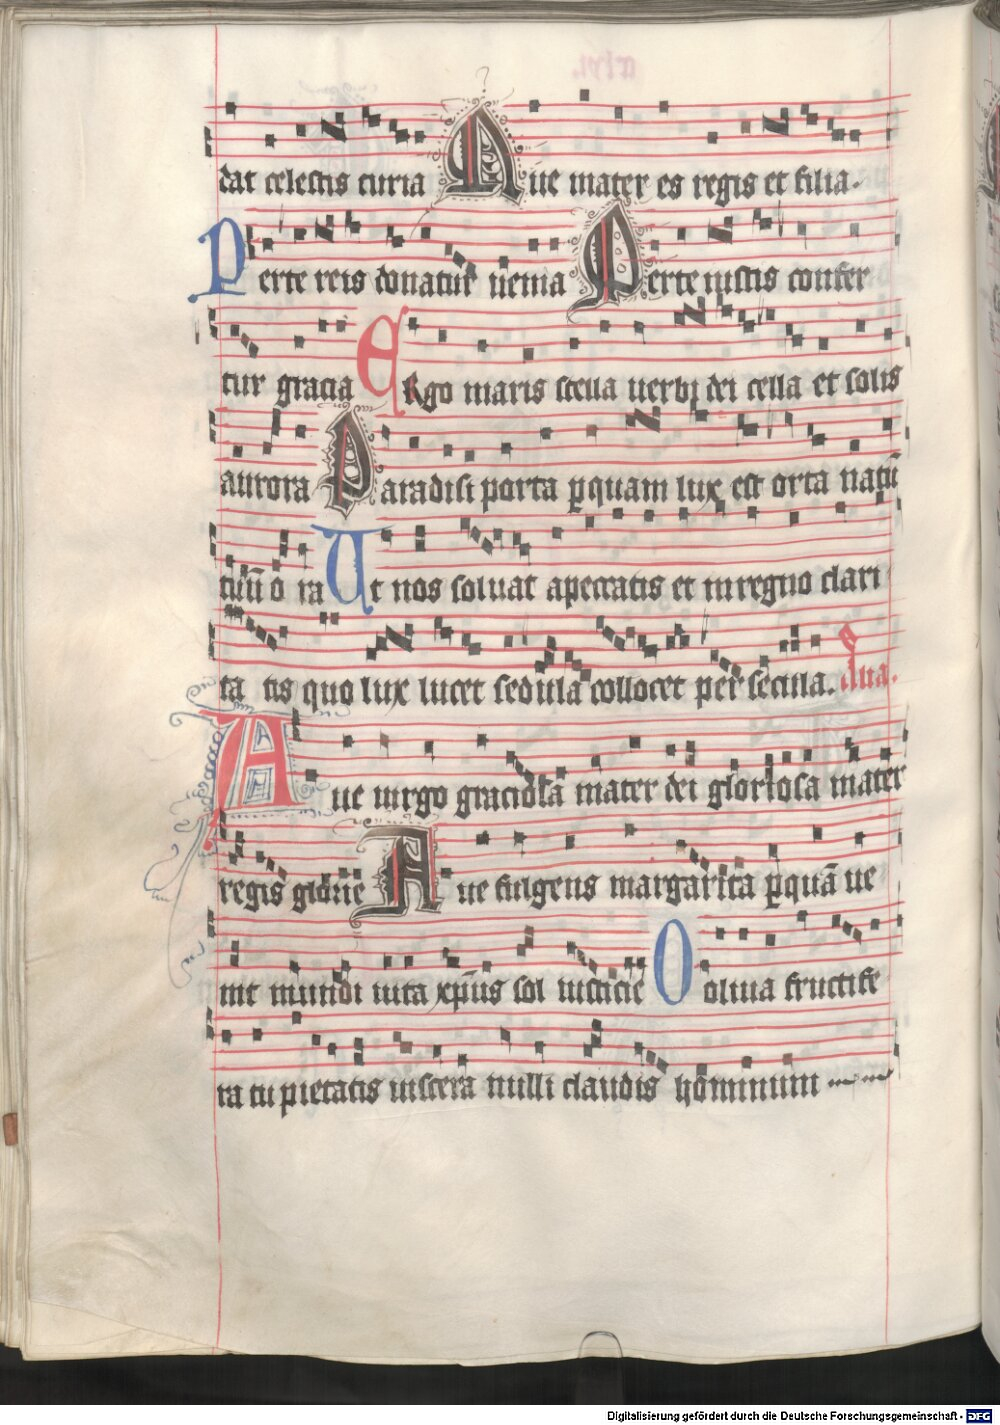 dat celestis curia Aue mater es regis et filia.
Perte reis donatur uenia Perte iustis confer
tur gracia eRgo maris stella uerbi dei cella et solis
aurora Paradisi porta pquam lux est orta natū
tuū o ra Ut nos soluat apeccatis et inregno clari
ta tis quo lux lucet sedula collocet per secula. alia.
Aue uirgo graciosa mater dei gloriosa mater
regis glorie Aue fulgens margarita pquā ue
nit mundi uita xp̄us sol iusticie O oliua fructife
ra tu pietatis uiscera nulli claudis hominum
Digitalisierung gefördert durch die Deutsche Forschungsgemeinschaft - DFG